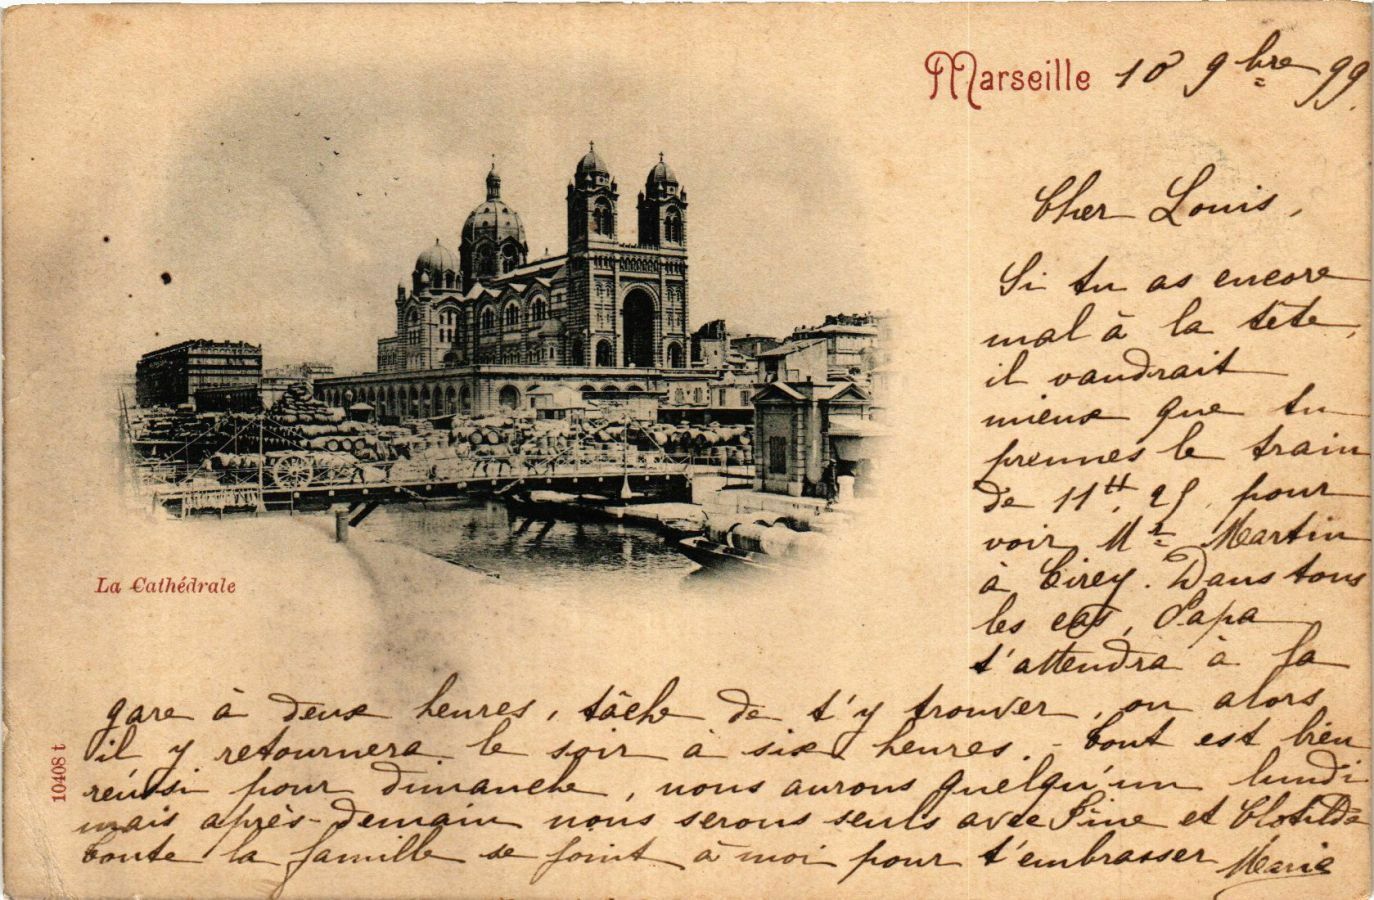 Marseille 10 9bre 99.
Cher Louis,
Si tu as encore
mal à la tête,
il vaudrait
mieux que tu
prennes le train
de 11h 25, pour
voir Mr Martin
à Cirey. Dans tous
les cas, Papa
t'attendra à la
gare à deux heures, tâche de t'y trouver, ou alors
il y retournera le soir à six heures. - Tout est bien
réussi pour dimanche, nous aurons quelqu'un lundi
mais après-demain nous serons seuls avec Line et Clotilde
toute la famille se joint à moi pour t'embrasser Marie
La Cathédrale
10408 t